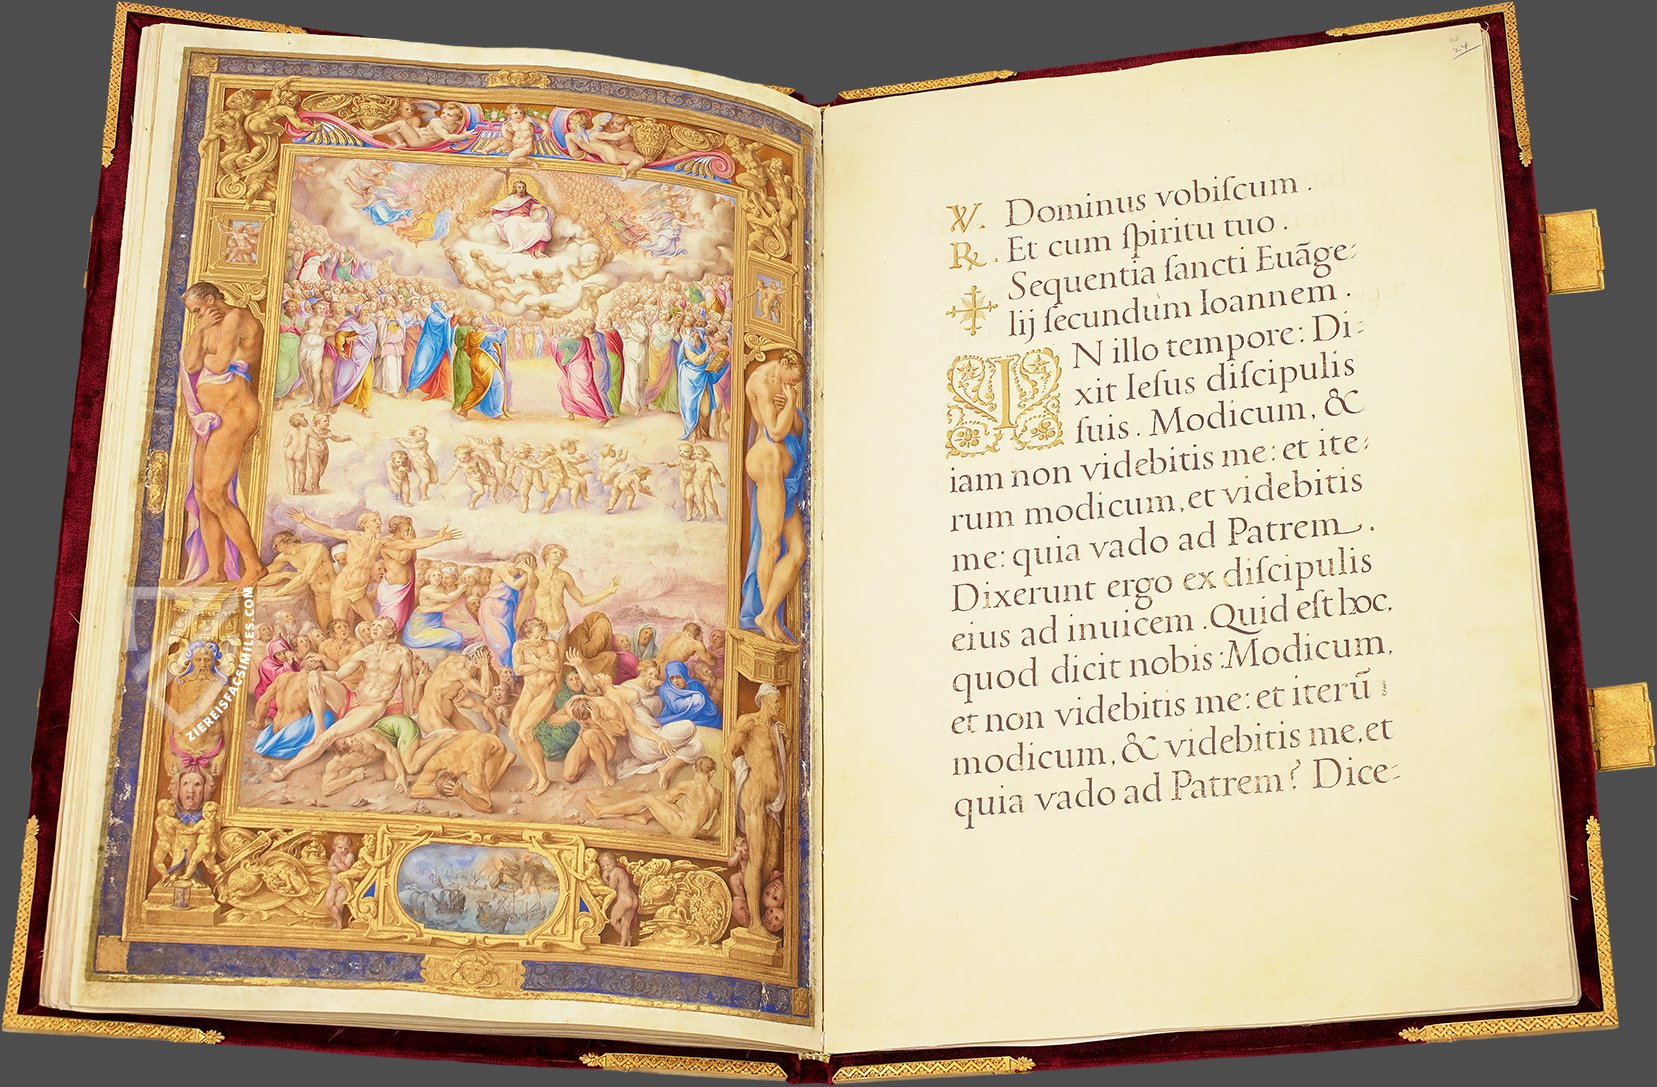 ZIEREISFACSIMILES.COM
24
V. Dominus vobiſcum.
R. Et cum ſpiritu tuo.
Sequentia ſancti Euãge⸗
✠ lij ſecundum Ioannem.
IN illo tempore: Di⸗
xit Ieſus diſcipulis
ſuis. Modicum, &
iam non videbitis me: et ite⸗
rum modicum, et videbitis
me: quia vado ad Patrem.
Dixerunt ergo ex diſcipulis
eius ad inuicem. Quid eſt hoc,
quod dicit nobis: Modicum,
et non videbitis me: et iterũ
modicum, & videbitis me, et
quia vado ad Patrem? Dice⸗